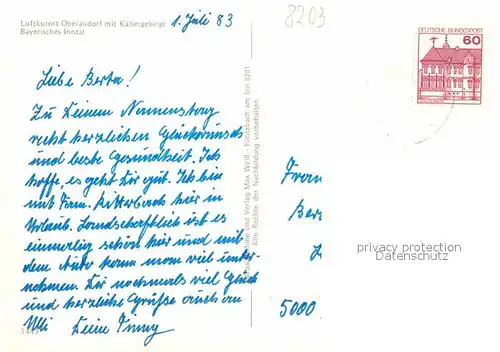 Luftkurort Oberaudorf mit Kaisergebirge
Bayerisches Inntal
1. Juli 83
8203
DEUTSCHE BUNDESPOST
60
Liebe Berta!
Zu Deinem Namenstag
recht herzlichen Glückwunsch
und beste Gesundheit. Ich
hoffe, es geht Dir gut. Ich bin
mit Fam. hier in
Urlaub. Landschaftlich ist es
einmalig schön hier und mit
dem Auto kann man viel unter-
nehmen. Dir nochmals viel Glück
und herzliche Grüße auch an
Deine
und Verlag Max Weiß - Fischbach am Inn 8201
Alle Rechte der Nachbildung vorbehalten
Frau
Ber
5000
privacy protection
Datenschutz